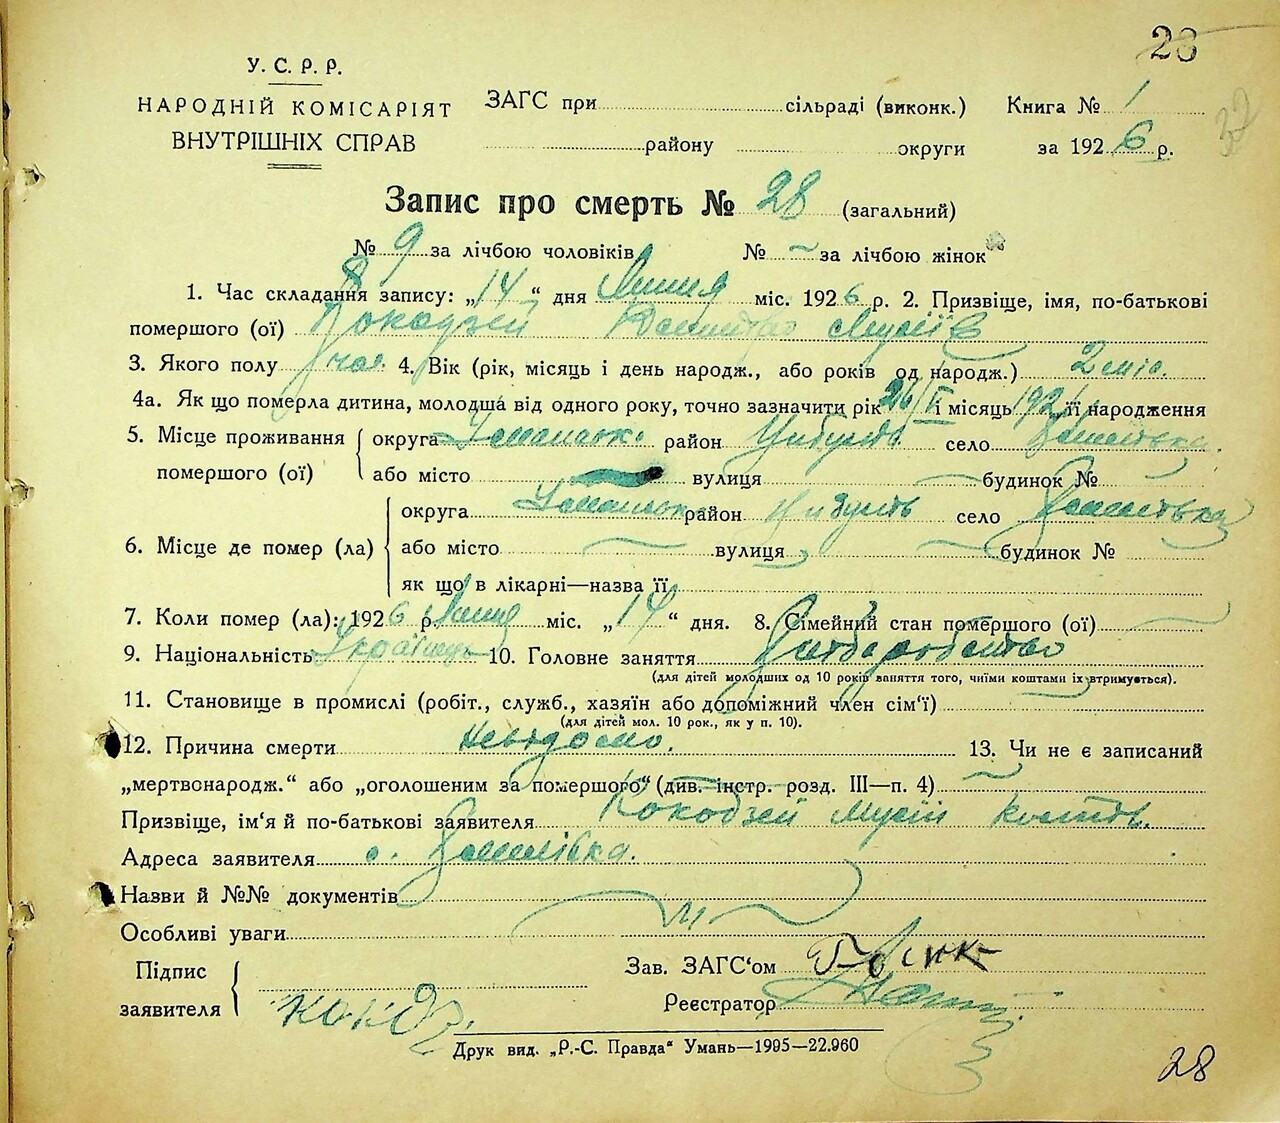 28
32
У. С. Р. Р.
НАРОДНІЙ КОМІСАРІЯТ
ВНУТРІШНІХ СПРАВ
ЗАГС при сільраді (виконк.) Книга № 1
району округи за 1926 р.
Запис про смерть № 28 (загальний)
№ 9 за лічбою чоловіків № за лічбою жінок
1. Час складання запису: „14“ дня Липня міс. 1926 р. 2. Призвіще, імя, по-батькові
помершого (ої) Кокодзей
3. Якого полу чол. 4. Вік (рік, місяць і день народж., або років од народж.) 2 міс.
4а. Як що померла дитина, молодша від одного року, точно зазначити рік і місяць її народження
5. Місце проживання помершого (ої) округа Уманськ. район село
або місто вулиця будинок №
6. Місце де помер (ла) округа Уманськ район село
або місто вулиця будинок №
як що в лікарні—назва її
7. Коли помер (ла): 1926 р. Липня міс. „14“ дня. 8. Сімейний стан помершого (ої)
9. Національність Українець 10. Головне заняття Хліборобство
(для дітей молодших од 10 років заняття того, чиїми коштами їх втримується).
11. Становище в промислі (робіт., служб., хазяїн або допоміжний член сім‘ї)
(для дітей мол. 10 рок., як у п. 10).
12. Причина смерти невідомо. 13. Чи не є записаний
„мертвонародж.“ або „оголошеним за помершого“ (див. інстр. розд. III—п. 4)
Призвіще, ім‘я й по-батькові заявителя Кокодзей Мусій Костьов.
Адреса заявителя с.
Назви й №№ документів
Особливі уваги
Підпис заявителя Кокодз.
Зав. ЗАГС‘ом
Реєстратор
Друк вид. „Р.-С. Правда“ Умань—1995—22.960
28